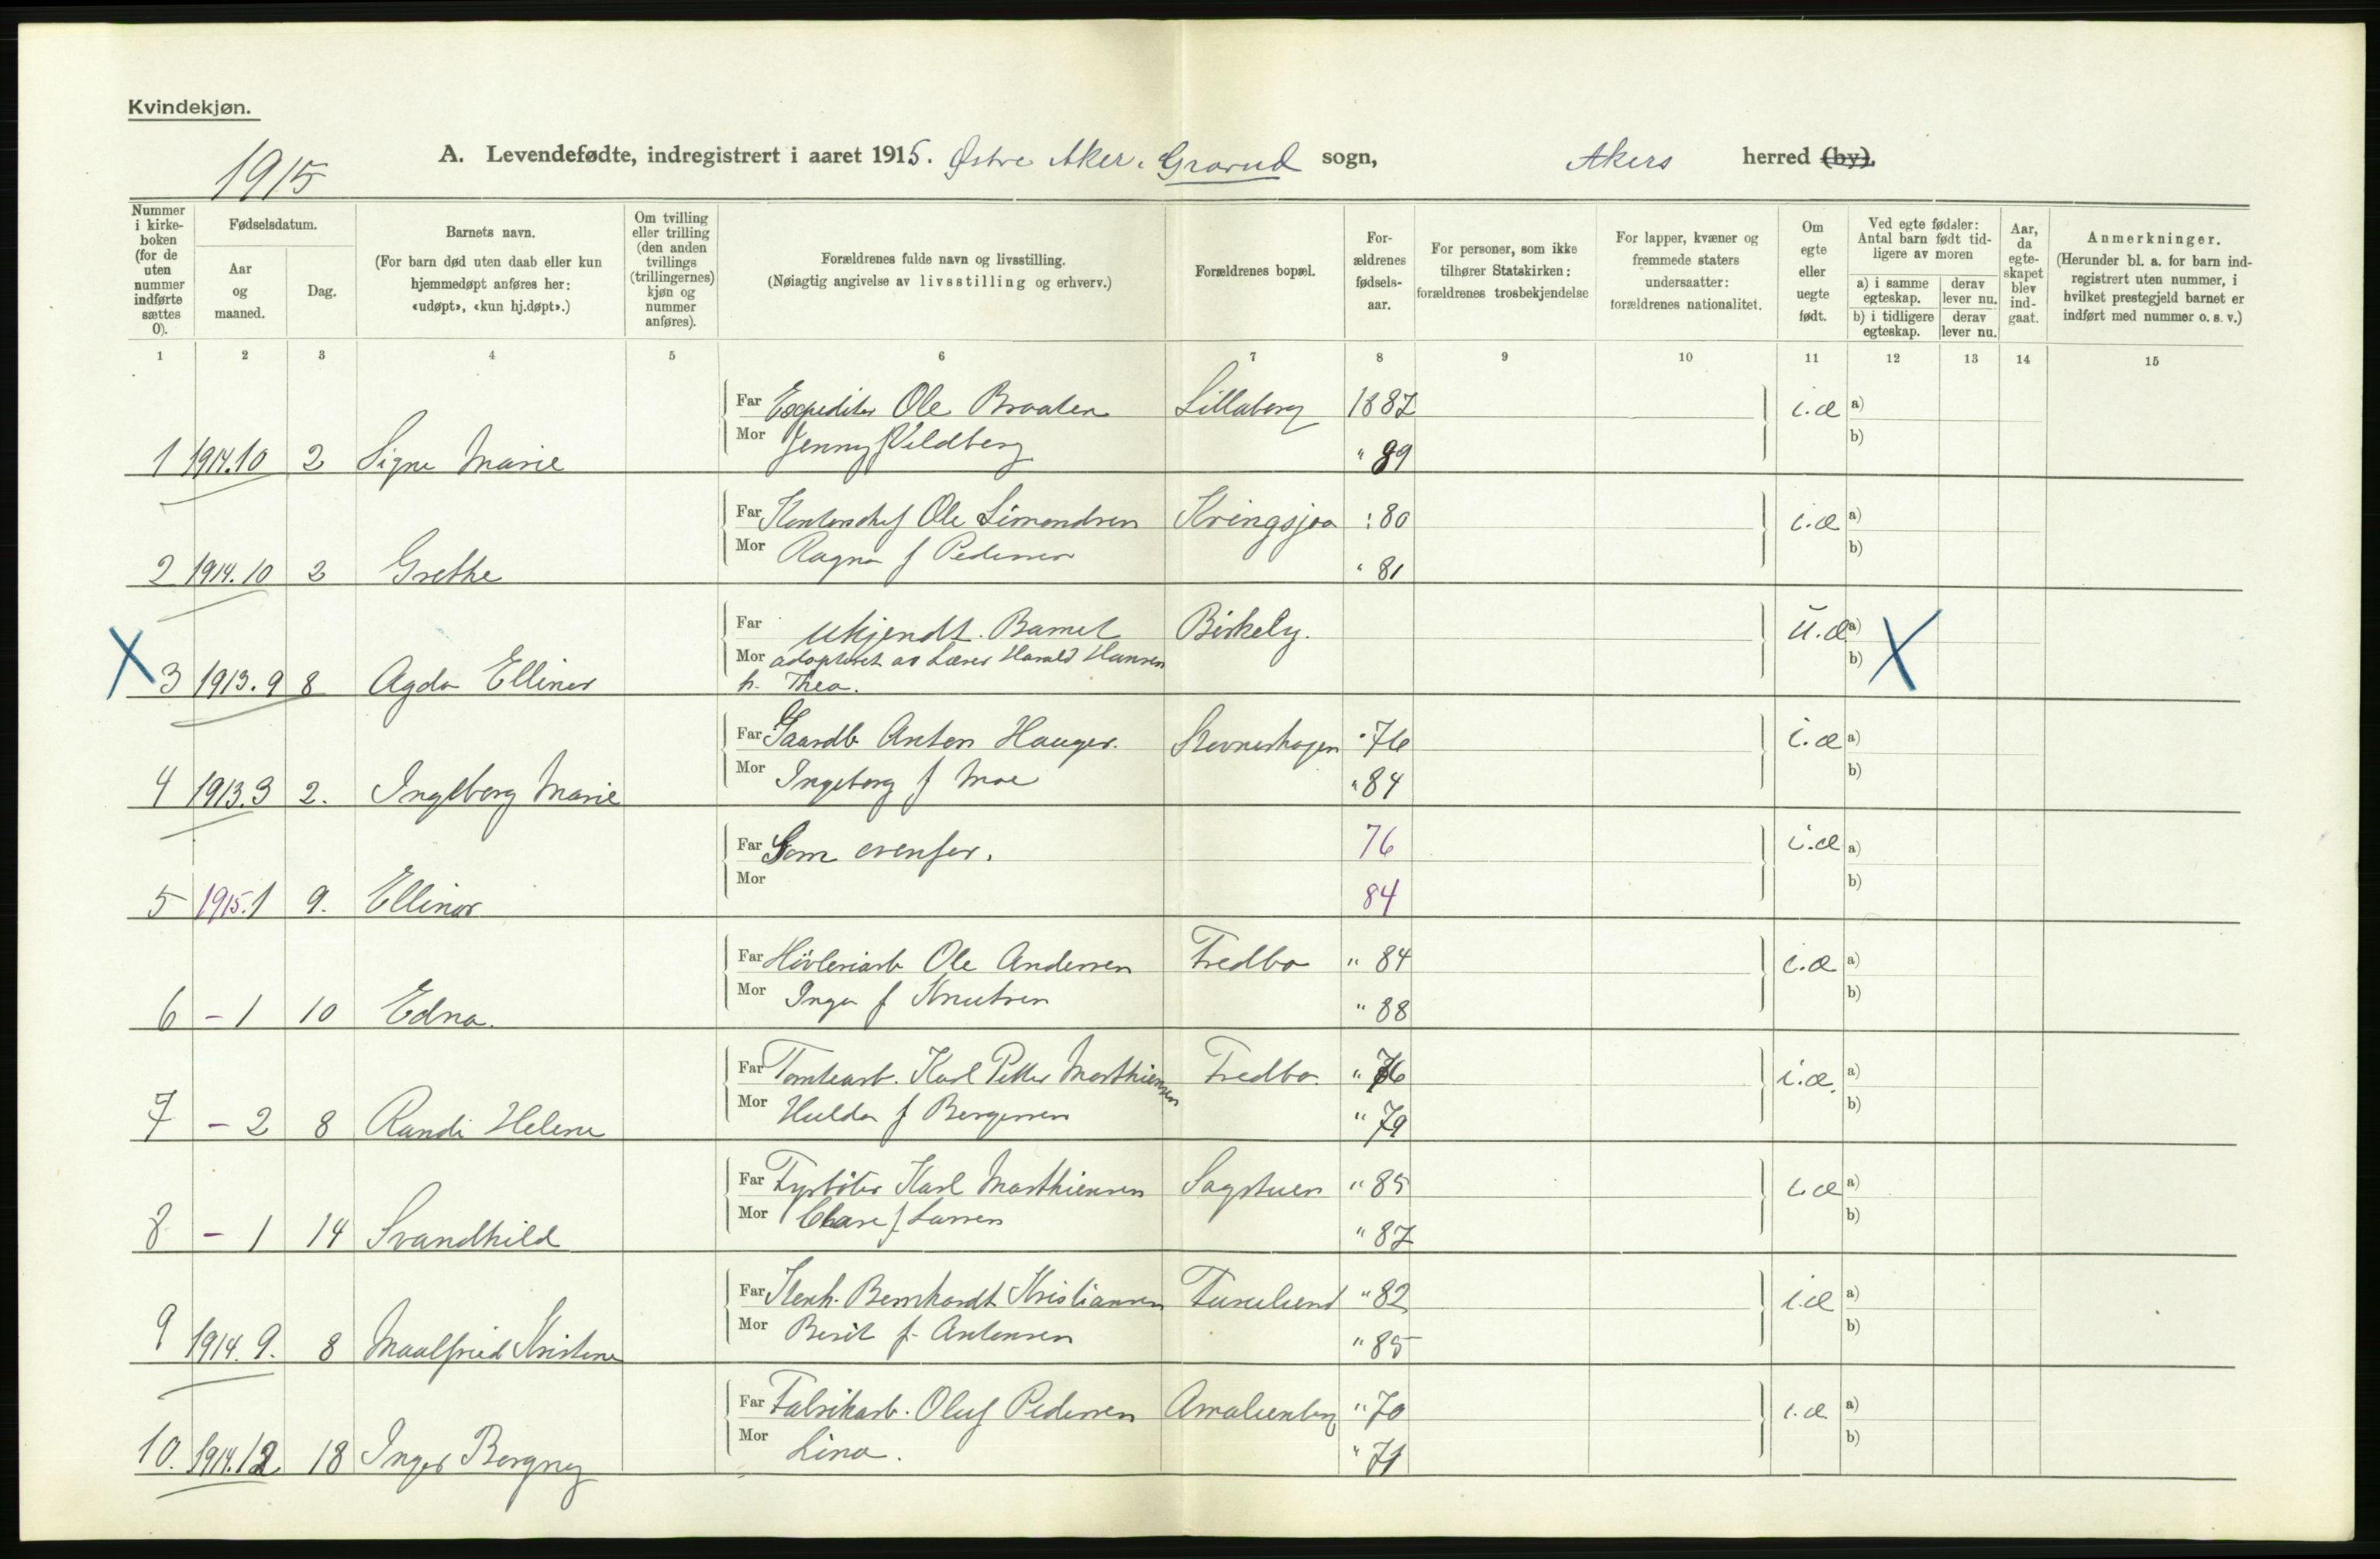 Kvindekjøn.
A. Levendefødte, indregistrert i aaret 1915. Østre Aker. Grorud sogn, Akers herred (by).
1915
Nummer i kirke-boken (for de uten nummer indførte sættes 0).
Fødselsdatum.
Aar og maaned.
Dag.
Barnets navn.
(For barn død uten daab eller kun hjemmedøpt anføres her: «udøpt», «kun hj.døpt».)
Om tvilling eller trilling (den anden tvillings (trillingernes) kjøn og nummer anføres).
Forældrenes fulde navn og livsstilling.
(Nøiagtig angivelse av livsstilling og erhverv.)
Forældrenes bopæl.
For-ældrenes fødsels-aar.
For personer, som ikke tilhører Statskirken: forældrenes trosbekjendelse
For lapper, kvæner og fremmede staters undersaatter: forældrenes nationalitet.
Om egte eller uegte født.
Ved egte fødsler: Antal barn født tid-ligere av moren
a) i samme egteskap.
derav lever nu.
b) i tidligere egteskap.
derav lever nu.
Aar, da egte-skapet blev ind-gaat.
Anmerkninger.
(Herunder bl. a. for barn ind-registrert uten nummer, i hvilket prestegjeld barnet er indført med nummer o. s. v.)
1 2 3 4 5 6 7 8 9 10 11 12 13 14 15
Far Expeditør Ole Braaten Lillaberg 1887 i.æ a)
Mor Jenny f. Veldberg b)
1 1914.10 2 Signe Marie " 89
Far Kontorchef Ole Simondsen Kringsjaa : 80 i.æ a)
Mor Ragna f Pedersen b)
2 1914.10 2 Grethe " 81
Far Ukjendt. Barnet Birkely. u.æ a)
Mor adopteret av Lærer Harald Hansen b)
X 3 1913.9 8 Agda Ellinor h. Thea. X
Far Gaardb Anton Hauger. Stovnerhagen " 76 i.æ a)
Mor Ingeborg f Moe " 84 b)
4 1913.3 2. Ingeborg Marie
Far Som ovenfor. 76 i.æ a)
Mor b)
5 1915.1 9. Ellinor 84
Far Høvleriarb Ole Andersen Fredbo " 84 i.æ a)
Mor Inga f Knutsen b)
6 - 1 10 Edna. " 88
Far Tomtearb. Karl Petter Marthiensen Fredbo. " 76 i.æ. a)
Mor Hulda f Bergersen b)
7 - 2 8 Randi Helene " 79
Far Fyrbøter Karl Marthiensen Sagstuen " 85 i.æ a)
Mor f Larsen b)
8 - 1 14 Svandhild " 87
Far Bernhardt Kristiansen Furulund " 82 i.æ a)
Mor Berit f. Antonsen b)
9 1914.9. 8 Maalfried Kristine " 85
Far Fabrikarb. Oluf Pedersen Amalienberg " 70 i.æ a)
Mor Lina. b)
10. 1914.12 18 Inger Borgny " 71